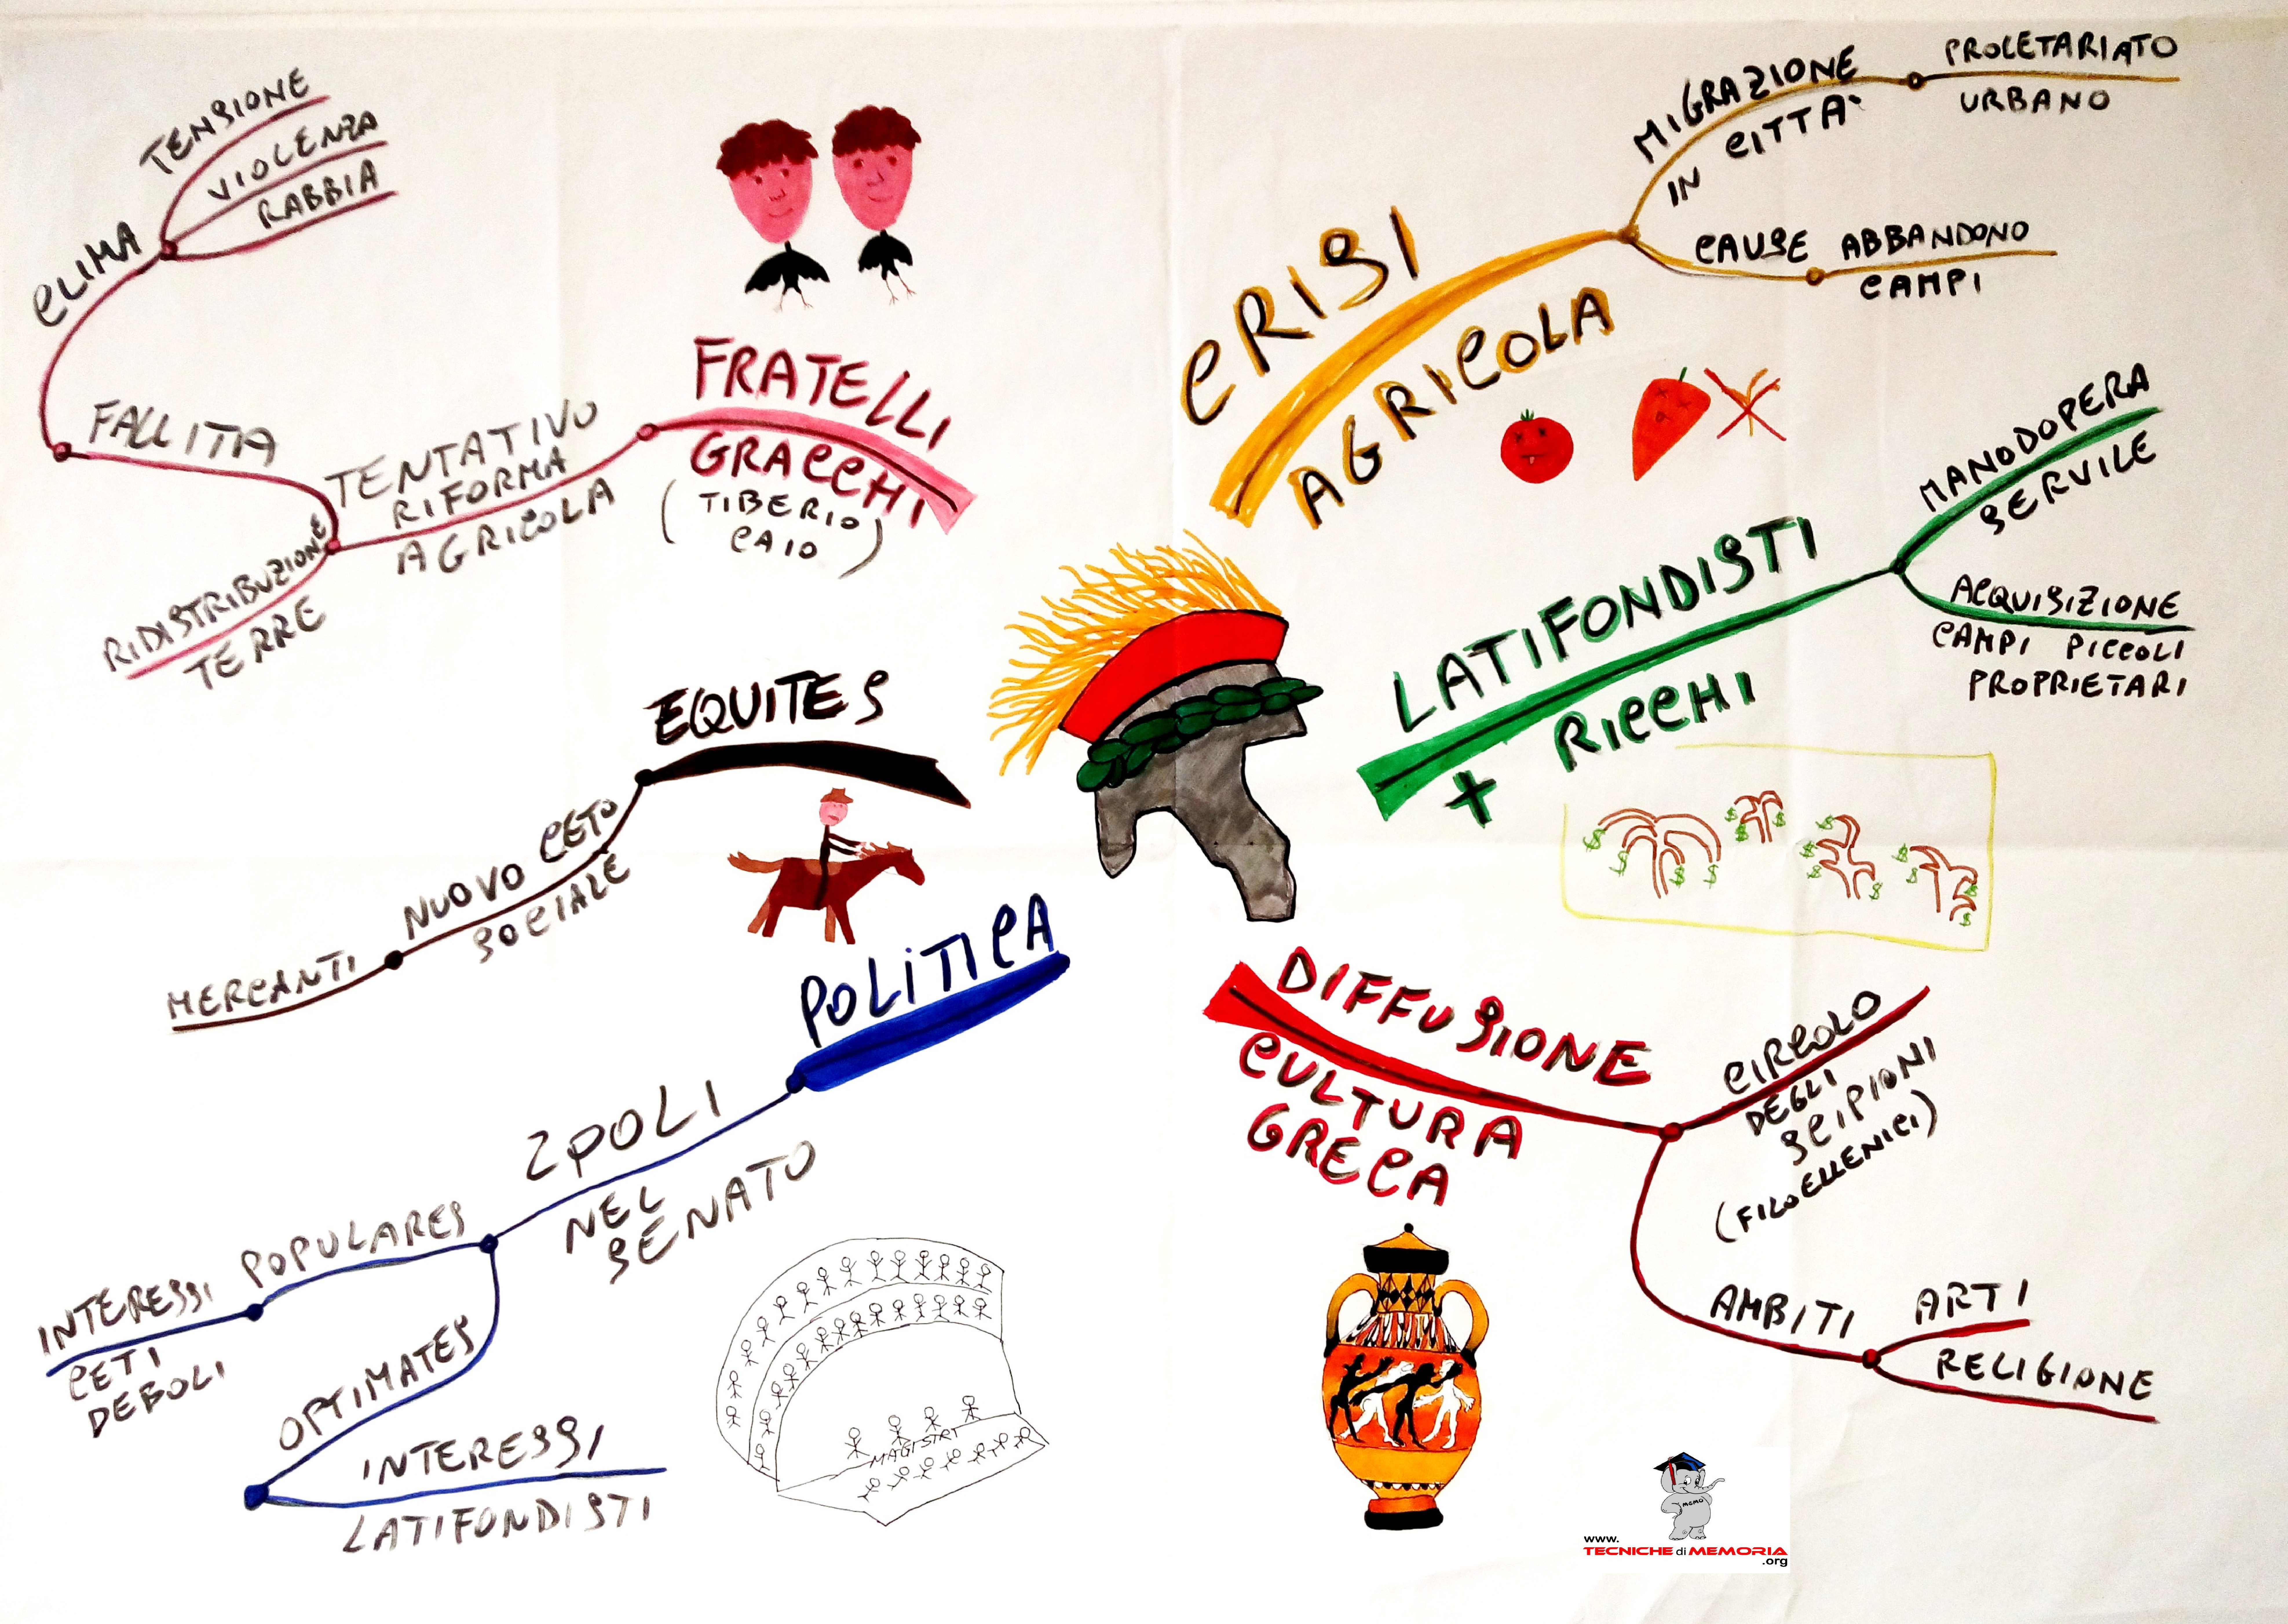 CRISI
AGRICOLA
MIGRAZIONE
IN CITTÀ
PROLETARIATO
URBANO
CAUSE ABBANDONO
CAMPI
LATIFONDISTI
+ RICCHI
MANODOPERA
SERVILE
ACQUISIZIONE
CAMPI PICCOLI
PROPRIETARI
DIFFUSIONE
CULTURA
GRECA
CIRCOLO
DEGLI
SCIPIONI
(FILOELLENICI)
AMBITI
ARTI
RELIGIONE
POLITICA
2 POLI
NEL
SENATO
POPULARES
INTERESSI
CETI
DEBOLI
OPTIMATES
INTERESSI
LATIFONDISTI
MAGISTRT
EQUITES
NUOVO CETO
SOCIALE
MERCANTI
FRATELLI
GRACCHI
(TIBERIO
CAIO)
TENTATIVO
RIFORMA
AGRICOLA
RIDISTRIBUZIONE
TERRE
FALLITA
CLIMA
TENSIONE
VIOLENZA
RABBIA
MEMO
www.
TECNICHE di MEMORIA
.org